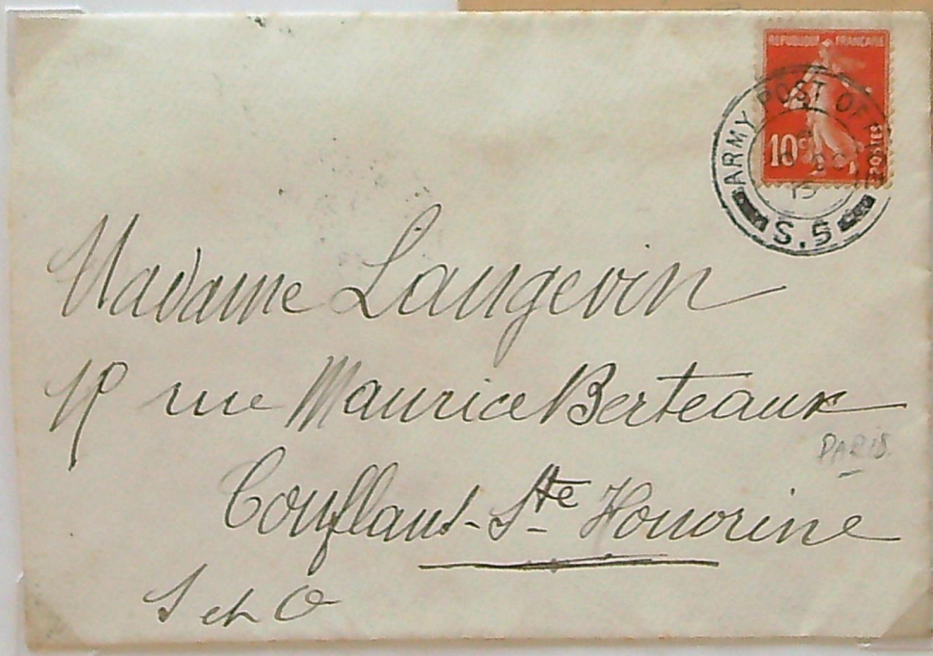 REPUBLIQUE FRANÇAISE
10c POSTES
ARMY POST OFFICE
S.5
Madame Langevin
rue Maurice Berteaux
PARIS
Conflans-Ste Honorine
S et O